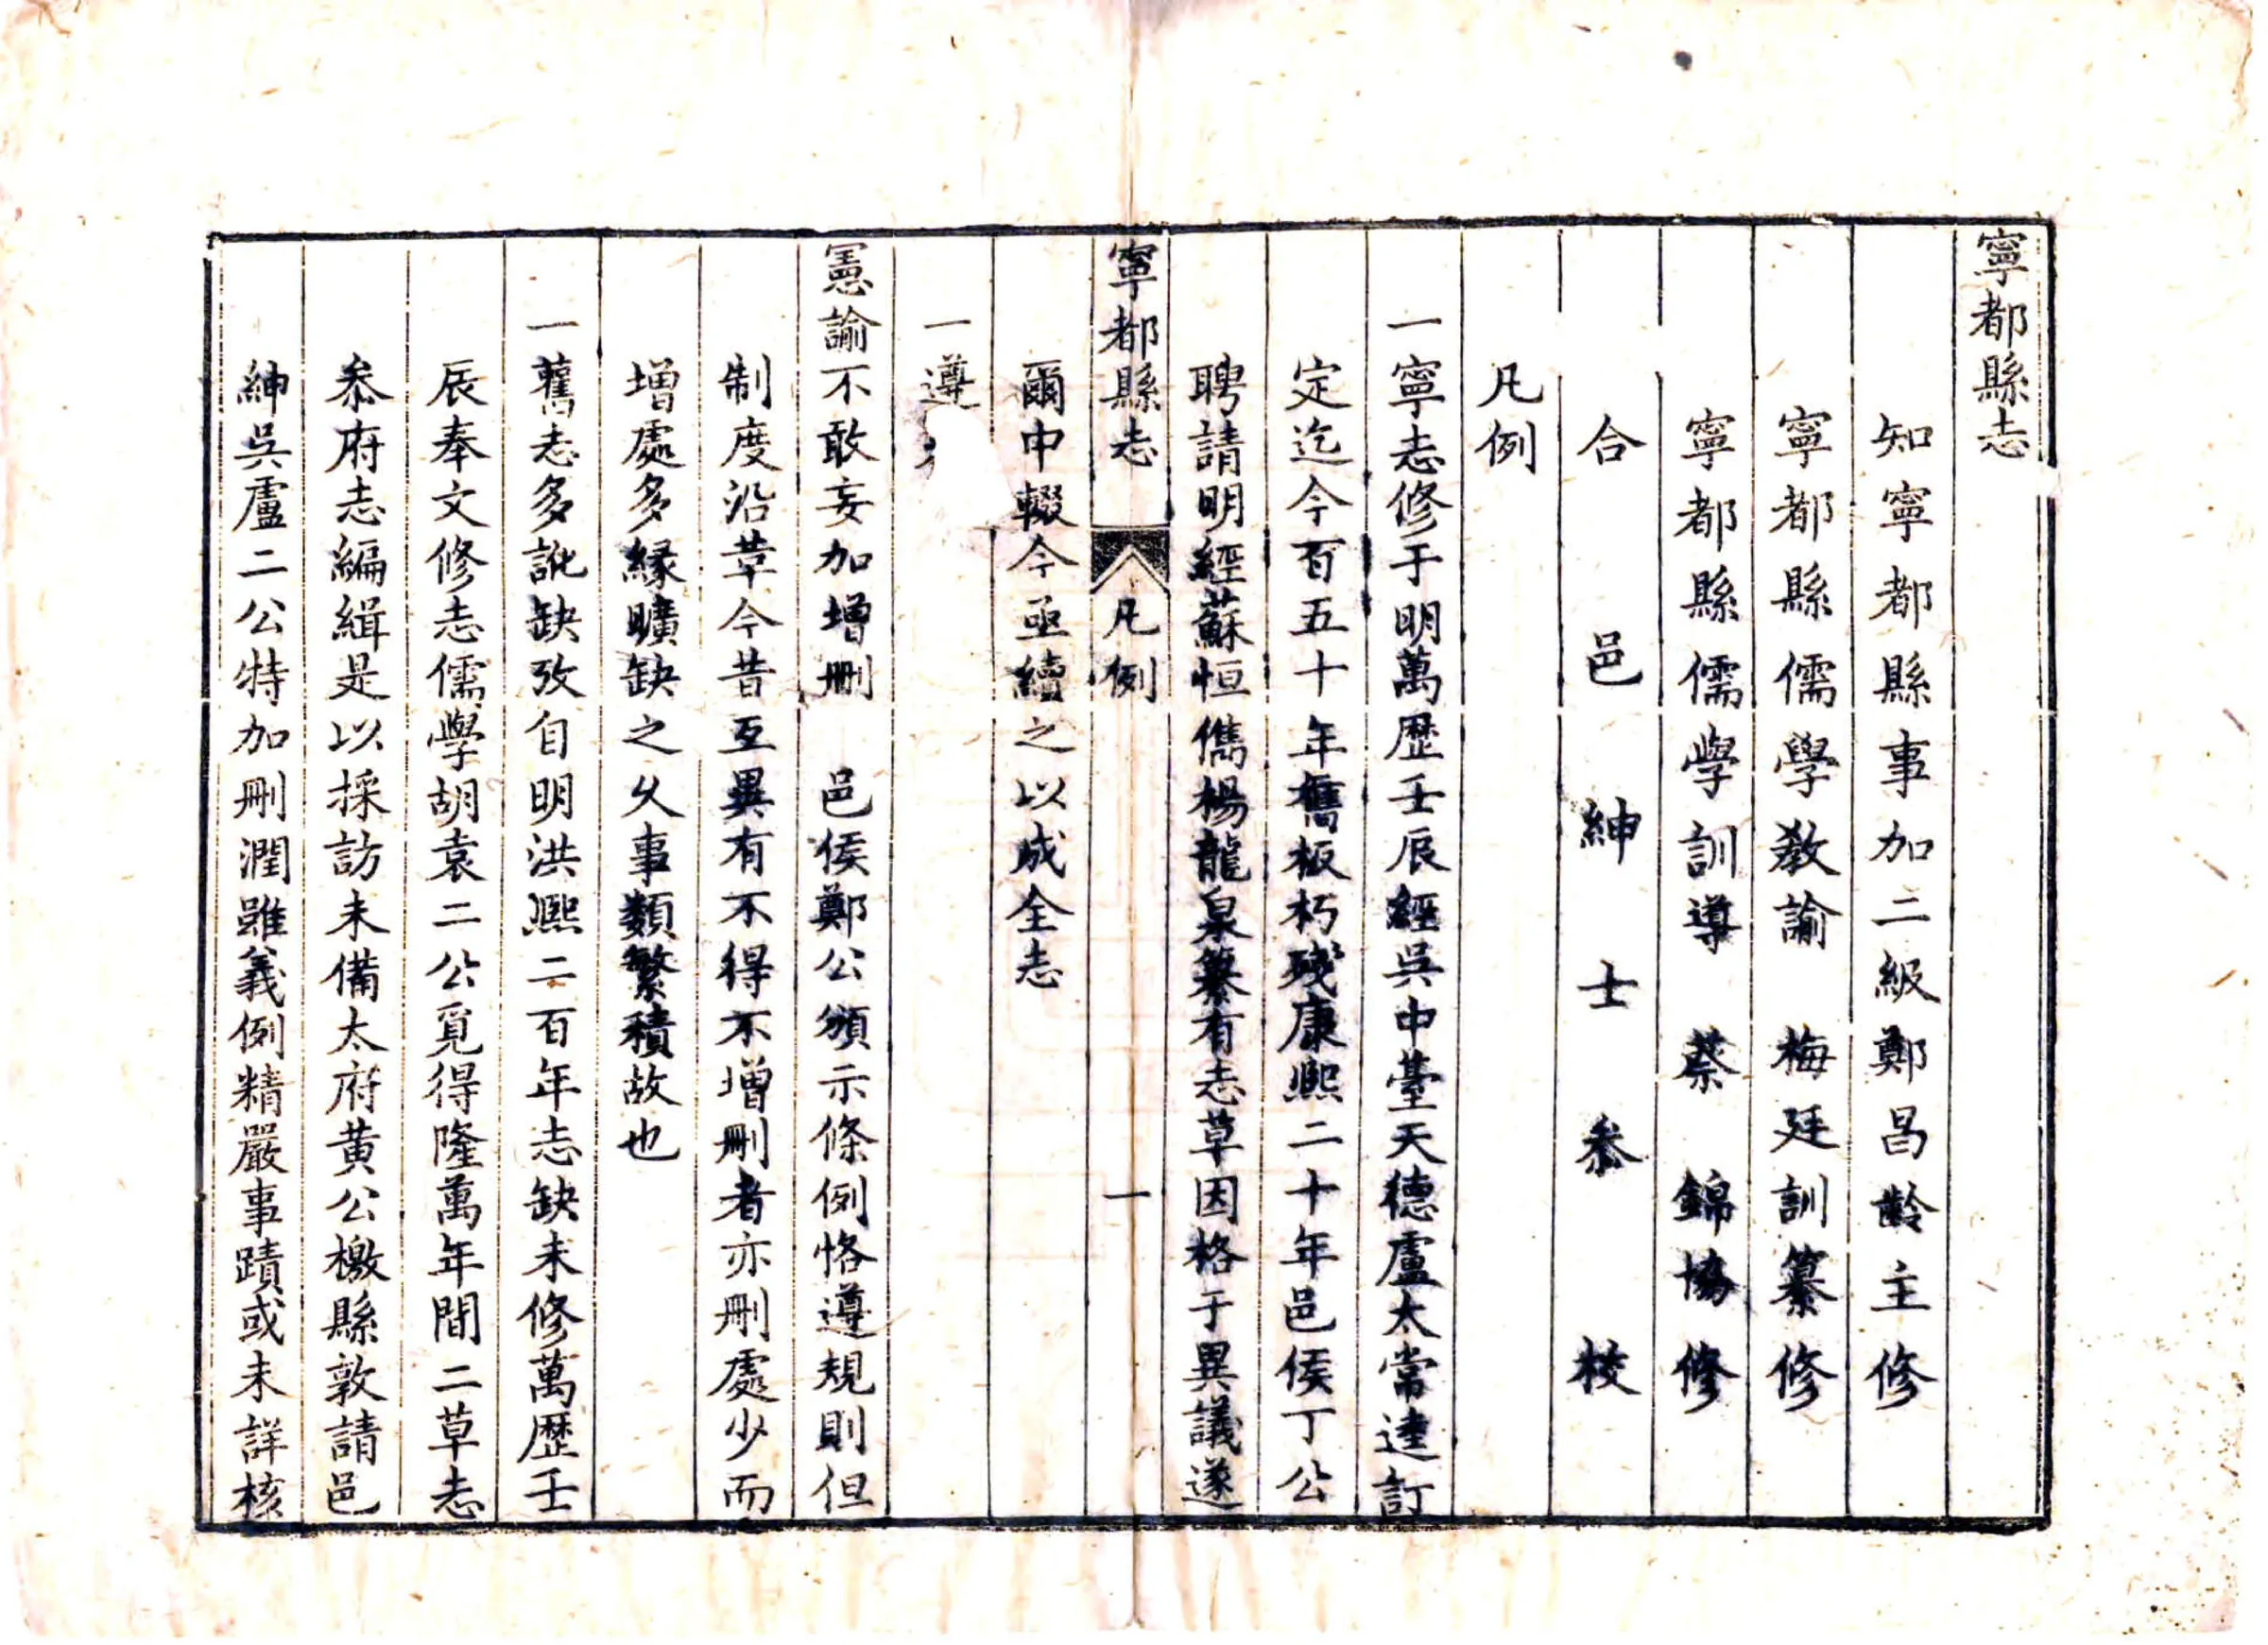 寧都縣志
知寧都縣事加二級鄭昌齡主修
寧都縣儒學教諭梅廷訓纂修
寧都縣儒學訓導蔡錦協修
合邑紳士叅校
凡例
一寧志修于明萬歷壬辰經吳中臺天德盧太常逵訂
定迄今百五十年舊板朽殘康熙二十年邑侯丁公
聘請明經蘇恒儁楊龍泉纂有志草因格于異議遂
寧都縣志 凡例 一
爾中輟今亟續之以成全志
一遵
憲諭不敢妄加增刪 邑侯鄭公頒示條例恪遵規則但
制度沿革今昔互異有不得不增刪者亦刪處少而
增處多緣曠缺之久事類繁積故也
一舊志多訛缺攷自明洪熙二百年志缺未修萬歷壬
辰奉文修志儒學胡袁二公覓得隆萬年間二草志
叅府志編緝是以採訪未備太府黃公檄縣敦請邑
紳吳盧二公特加刪潤雖義例精嚴事蹟或未詳核